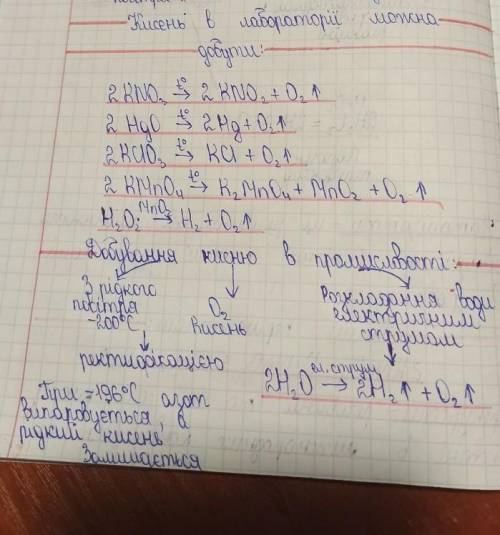 Кисень в лабораторії можна
добути:
2 KNO₃ t°→ 2 KNO₂ + O₂↑
2 HgO t°→ 2Hg + O₂↑
2KClO₃ t°→ KCl + O₂↑
2 KMnO₄ t°→ K₂MnO₄ + MnO₂ + O₂↑
H₂O₂ MnO₂→ H₂ + O₂↑
Добування кисню в промисловості:
З рідкого
повітря
-200°C
O₂
Кисень
Розкладання води
електричним
струмом
ректифікацією
2H₂O ел. струм→ 2H₂↑ + O₂↑
При -196°C азот
випаровується, а
рідкий кисень
залишається